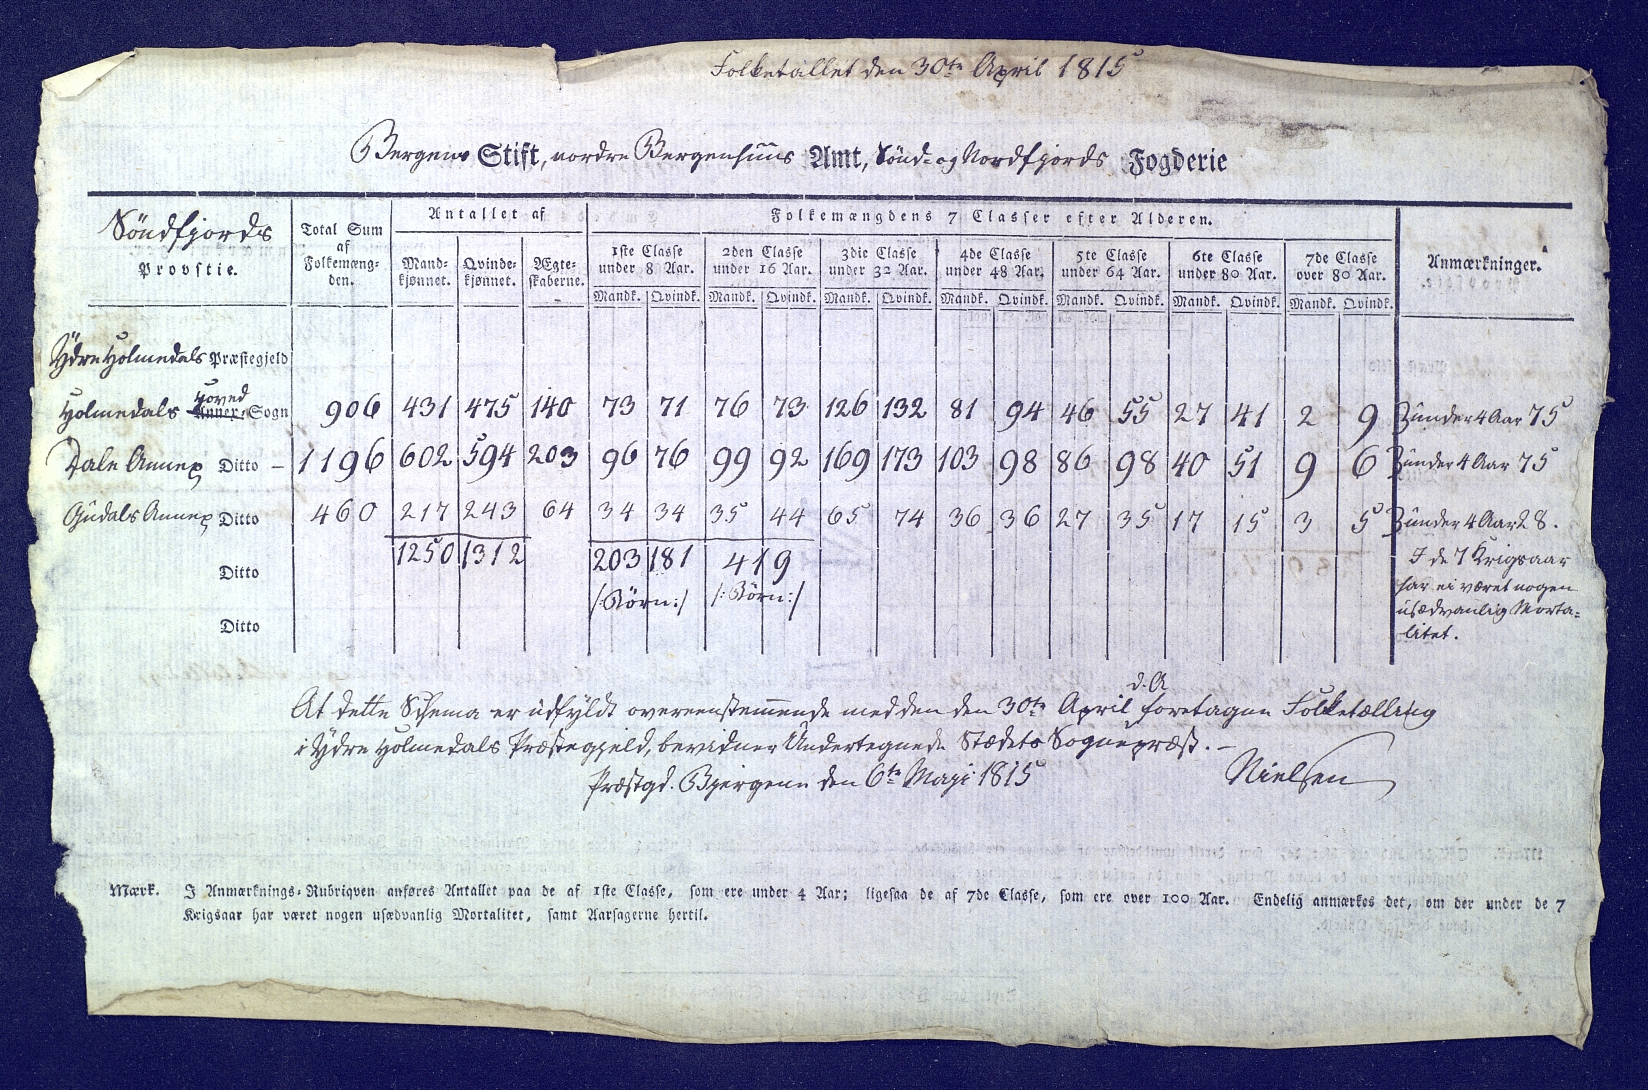 Folketallet den 30te April 1815
Bergens Stift, nordre Bergenhuus Amt, Sönd- og Nordfjords Fogderie
Söndfjords Provstie.
Total Sum af Folkemæng-den.
Antallet af
Mand-kjønnet. Qvinde-kjønnet. Ægte-skaberne.
Folkemængdens 7 Classer efter Alderen.
1ste Classe under 8 Aar. 2den Classe under 16 Aar. 3die Classe under 32 Aar. 4de Classe under 48 Aar. 5te Classe under 64 Aar. 6te Classe under 80 Aar. 7de Classe over 80 Aar.
Mandk. Qvindk. Mandk. Qvindk. Mandk. Qvindk. Mandk. Qvindk. Mandk. Qvindk. Mandk. Qvindk. Mandk. Qvindk.
Anmærkninger.
Ydre Holmedals Præstegjeld
Holmedals Hoved Annex-Sogn 906 431 475 140 73 71 76 73 126 132 81 94 46 55 27 41 2 9 under 4 Aar 75
Dale Annex Ditto – 1196 602 594 203 96 76 99 92 169 173 103 98 86 98 40 51 9 6 under 4 Aar 75
Gudals Annex Ditto 460 217 243 64 34 34 35 44 65 74 36 36 27 35 17 15 3 5 under 4 Aar 28.
Ditto 1250 1312 203 181 419
/:Börn:/ /:Börn:/
Ditto
I de 7 Krigsaar
har ei været nogen
usædvanlig Morta-
litet.
At dette Schema er udfyldt overeenstemmende med den den 30te April d. A foretagne Folketælling
i Ydre Holmedals Præstegjeld, bevidner Undertegnede Stædets Sognepræst. –
Præstgd. Bjergene den 6te Maji 1815 Nielsen
Mærk. I Anmærknings-Rubriqven anføres Antallet paa de af 1ste Classe, som ere under 4 Aar; ligesaa de af 7de Classe, som ere over 100 Aar. Endelig anmærkes det, om der under de 7
Krigsaar har været nogen usædvanlig Mortalitet, samt Aarsagerne hertil.